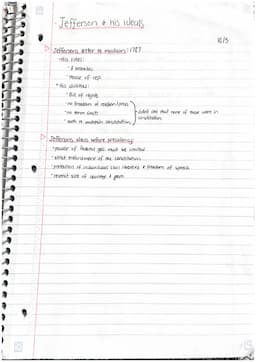 Jefferson & his ideals
10/3
Jeffersons letter to madison: 1787
his likes:
house of rep
his dislikes:
Bill of rights
no freedom of religion/press
no term limits
didnt like that none of these were in constitution
oath to maintain constitution
Jeffersons ideas before presidency:
power of federal gov. must be limited
strict enforcement of the constitution
protection of individual civil liberties & freedom of speech
permit size of